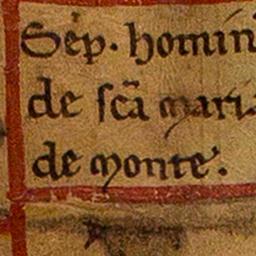 Sep̄. homin
de ſcā mari
de monte.